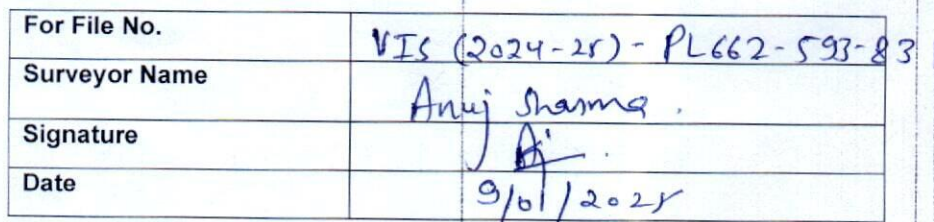 For File No. VIS (2024-25) - PL662-593-83
Surveyor Name Anuj Sharma.
Signature
Date 9/01/2025